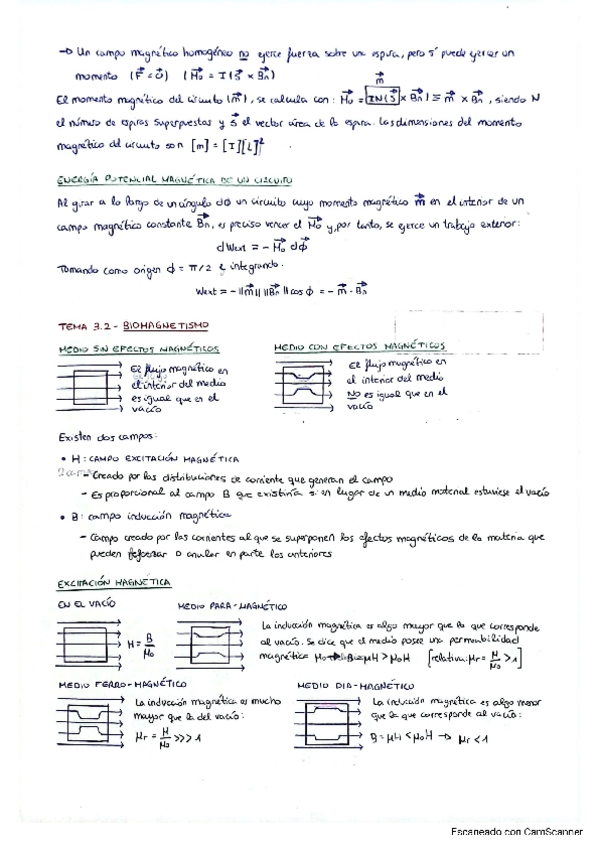 → Un campo magnético homogéneo no ejerce fuerza sobre una espira, pero sí puede ejercer un
momento (F⃗ = 0) (M⃗o = I (S⃗ × B⃗n)
El momento magnético del circuito (m⃗), se calcula con: M⃗o = IN(S⃗ × B⃗n) ≡ m⃗ × B⃗n, siendo N
m⃗
el número de espiras superpuestas y S⃗ el vector área de la espira. Las dimensiones del momento
magnético del circuito son [m] = [I][L]²
ENERGÍA POTENCIAL MAGNÉTICA DE UN CIRCUITO
Al girar a lo largo de un ángulo dφ un circuito cuyo momento magnético m⃗ en el interior de un
campo magnético constante B⃗n, es preciso vencer el M⃗o y, por tanto, se ejerce un trabajo exterior:
dWext = - M⃗o dφ⃗
Tomando como origen φ = π/2 e integrando.
Wext = - ||m⃗|| ||B⃗n|| cos φ = - m⃗ · B⃗n
TEMA 3.2 - BIOMAGNETISMO
MEDIO SIN EFECTOS MAGNÉTICOS
El flujo magnético en
el interior del medio
es igual que en el
vacío
MEDIO CON EFECTOS MAGNÉTICOS
El flujo magnético en
el interior del medio
NO es igual que en el
vacío
Existen dos campos:
• H: CAMPO EXCITACIÓN MAGNÉTICA
- Creado por las distribuciones de corriente que generan el campo
- Es proporcional al campo B que existiría si en lugar de un medio material estuviese el vacío
• B: campo inducción magnética
- Campo creado por las corrientes al que se superponen los efectos magnéticos de la materia que
pueden reforzar o anular en parte los anteriores
EXCITACIÓN MAGNÉTICA
EN EL VACÍO
H = B/μo
MEDIO PARA-MAGNÉTICO
La inducción magnética es algo mayor que la que corresponde
al vacío. Se dice que el medio posee una permeabilidad
magnética B = μH > μoH [relativa: μr = μ/μo > 1]
MEDIO FERRO-MAGNÉTICO
La inducción magnética es mucho
mayor que la del vacío:
μr = μ/μo >>> 1
MEDIO DIA-MAGNÉTICO
La inducción magnética es algo menor
que la que corresponde al vacío:
B = μH < μoH → μr < 1
Escaneado con CamScanner